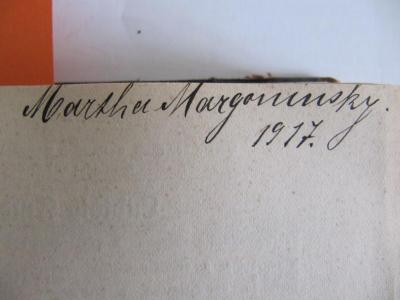 Martha Margoninsky.
1917.